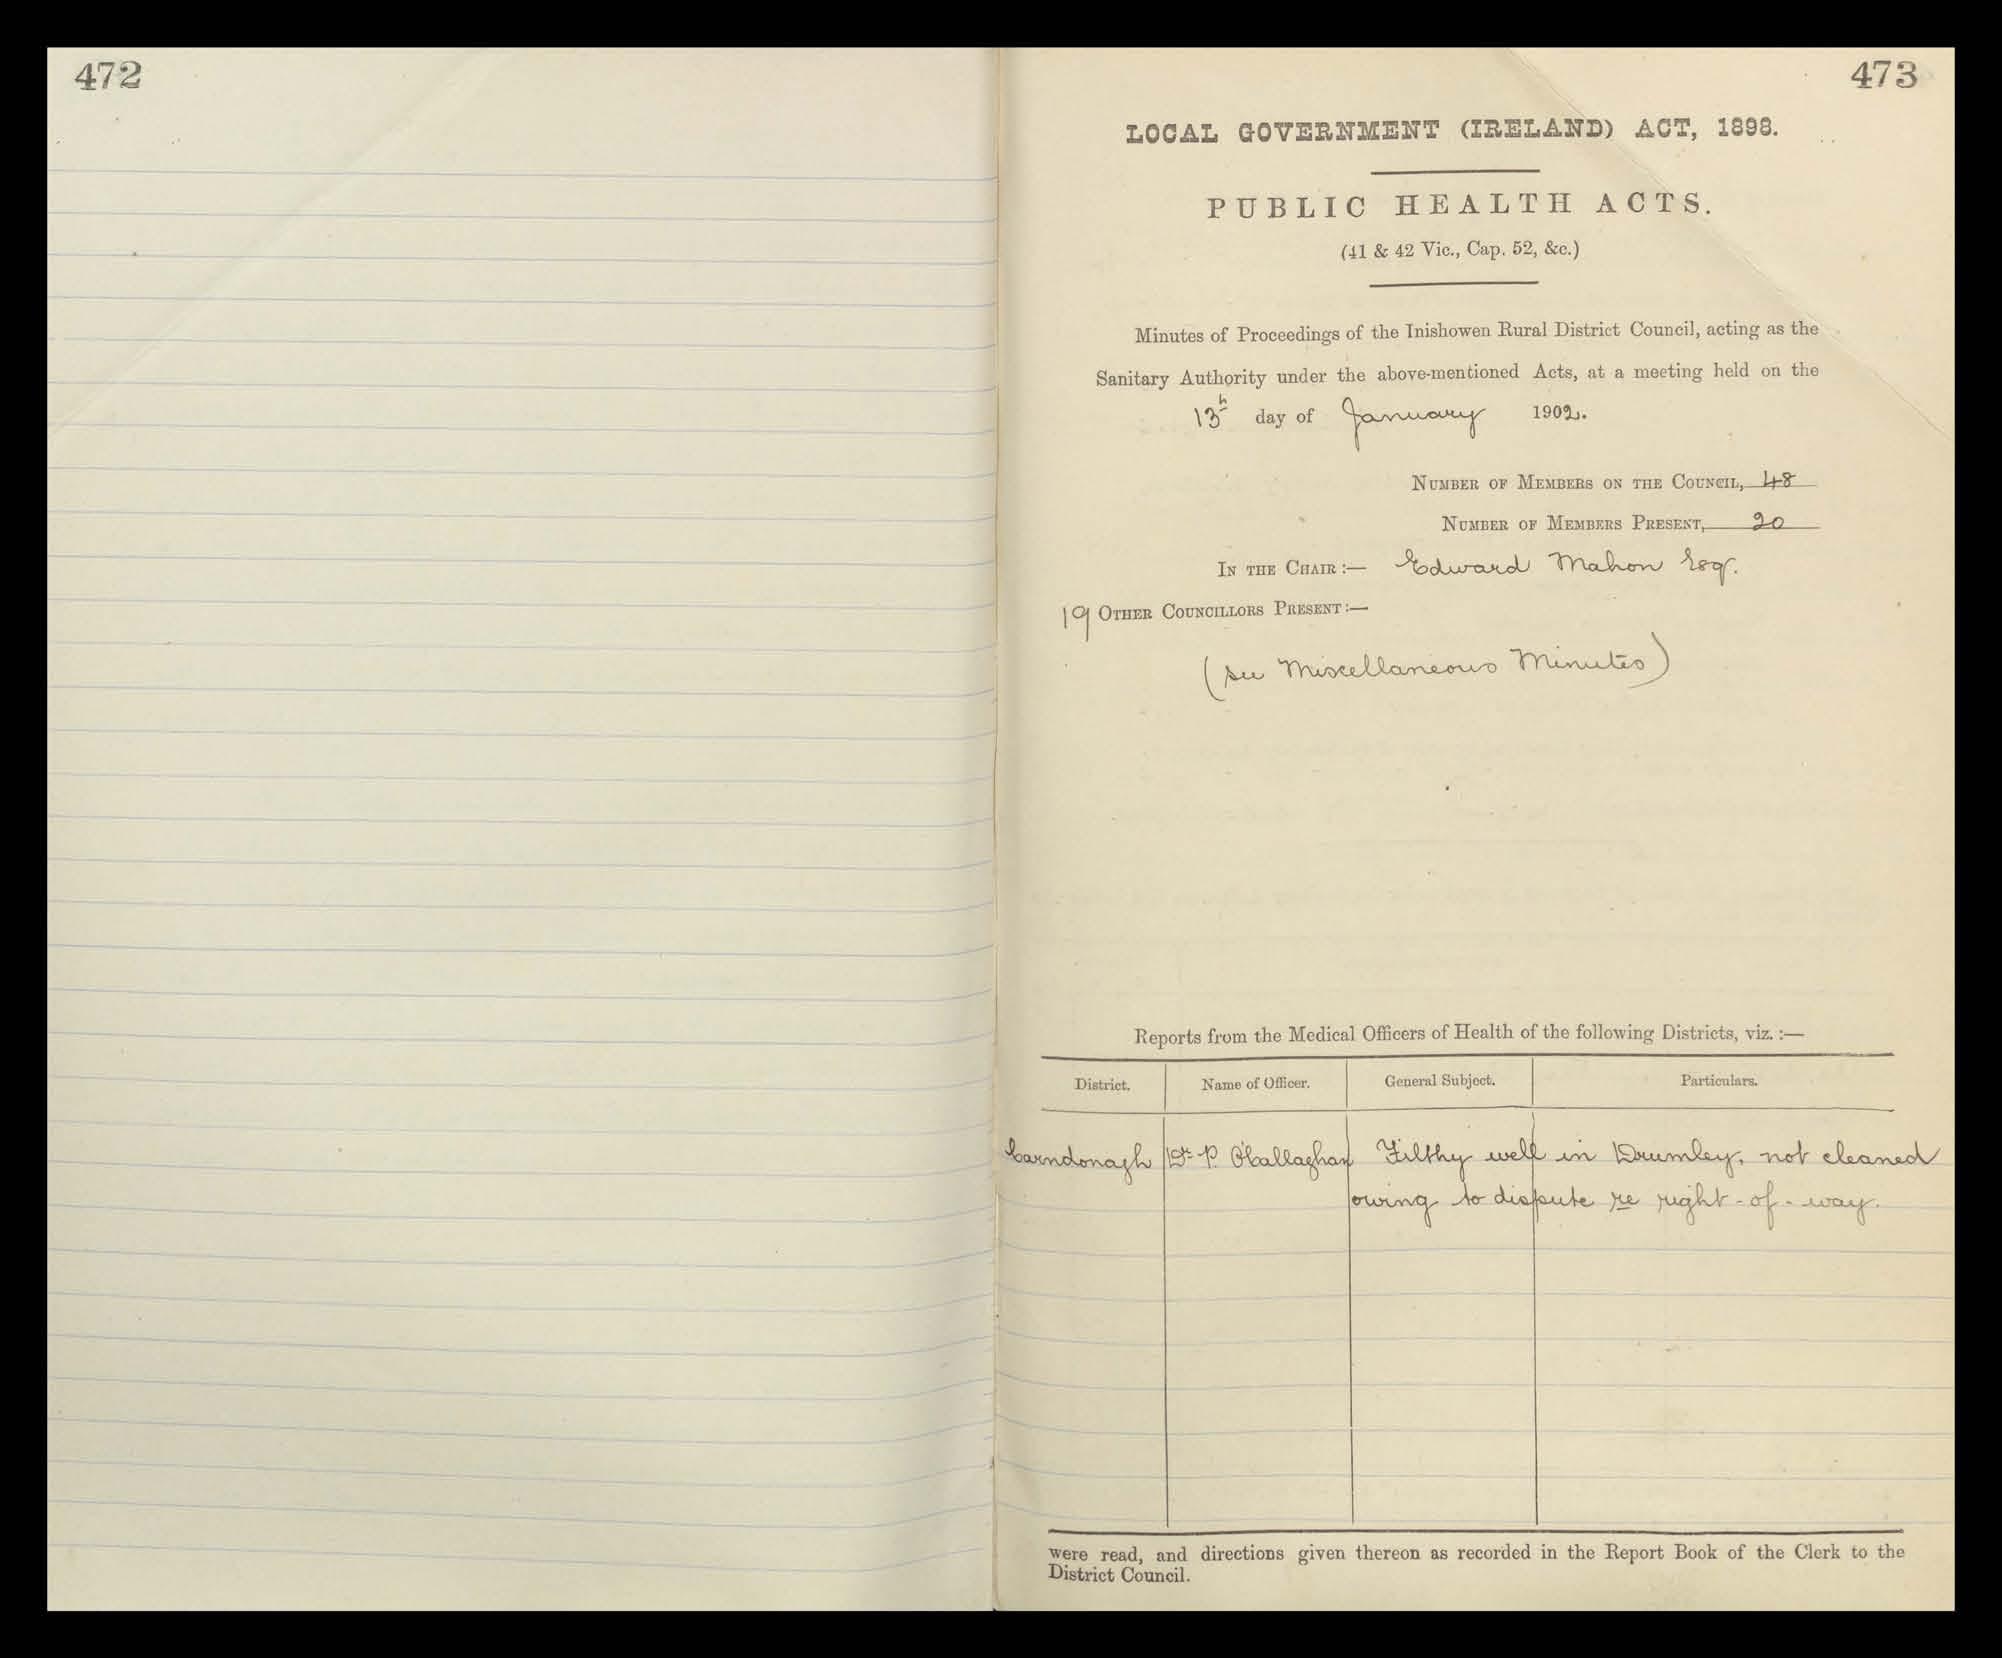 472
473
LOCAL GOVERNMENT (IRELAND) ACT, 1898.
PUBLIC HEALTH ACTS.
(41 & 42 Vic., Cap. 52, &c.)
Minutes of Proceedings of the Inishowen Rural District Council, acting as the
Sanitary Authority under the above-mentioned Acts, at a meeting held on the
13th day of January 1902.
NUMBER OF MEMBERS ON THE COUNCIL, 48
NUMBER OF MEMBERS PRESENT, 20
IN THE CHAIR:— Edward Mahon Esq.
19 OTHER COUNCILLORS PRESENT:—
(see Miscellaneous Minutes)
Reports from the Medical Officers of Health of the following Districts, viz.:—
District. Name of Officer. General Subject. Particulars.
Carndonagh Dr. P. O'Callaghan Filthy well in Drumley, not cleaned
owing to dispute re right-of-way.
were read, and directions given thereon as recorded in the Report Book of the Clerk to the
District Council.